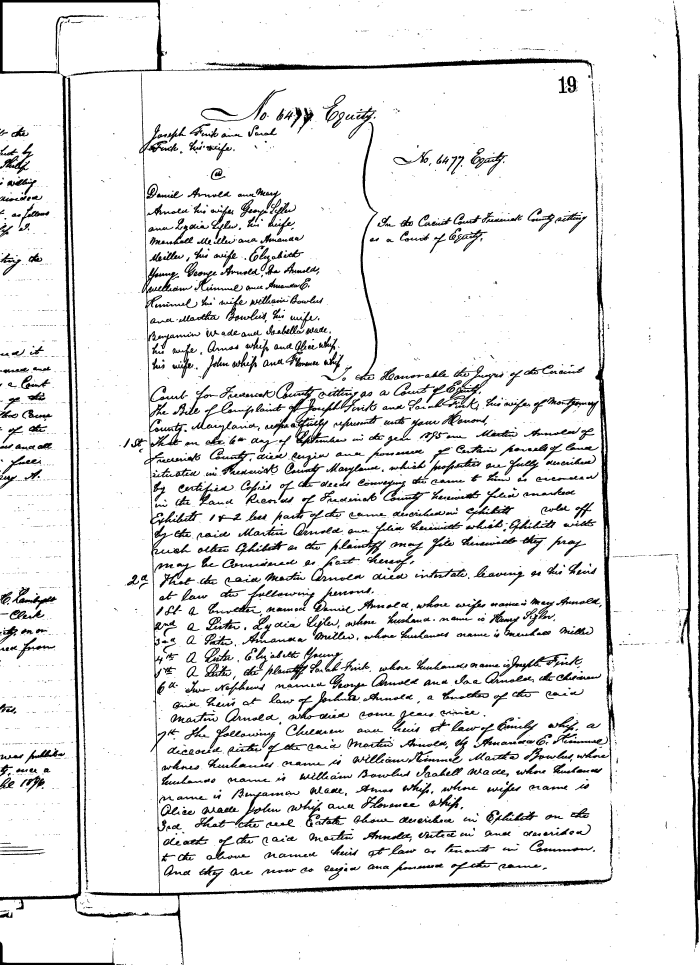 19
No. 6477 Equity.
Joseph Fink and Sarah
Fink, his wife.
@
Daniel Arnold and Mary
Arnold his wife, George Lyler
and Lydia Lyler, his wife,
Marshall Miller and Amanda
Miller, his wife. Elizabeth
Young, George Arnold, Ira Arnold,
William Kimmel and Amanda E.
Kimmel his wife William Bowlus
and Martha Bowlus, his wife,
Benjamin Wade and Isabella Wade,
his wife, Amos Whip and Alice Whip
his wife, John Whip and Florence Whip
No. 6477 Equity.
In the Circuit Court Frederick County, sitting
as a Court of Equity.
To the Honorable the Judges of the Circuit
Court for Frederick County, sitting as a Court of Equity.
The Bill of Complaint of Joseph Fink and Sarah Fink, his wife of Montgomery
County, Maryland, respectfully represents unto your Honors,
1st That on the 6th day of September in the year 1895 one Martin Arnold of
Frederick County, died seized and possessed of certain parcels of land
situated in Frederick County Maryland, which properties are fully described
by certified Copies of the deeds conveying the same to him as recorded
in the Land Records of Frederick County herewith filed marked
Exhibits 1 & 2 less parts of the same described in Exhibits sold off
by the said Martin Arnold and filed herewith which Exhibits with
such other Exhibits as the plaintiff may file herewith they pray
may be considered as part hereof.
2d That the said Martin Arnold died intestate, leaving as his heirs
at law the following persons.
1st A brother, named Daniel Arnold, whose wife's name is Mary Arnold.
2nd A Sister, Lydia Lyler, whose husband name is Henry Lyler.
3rd A Sister, Amanda Miller, whose husbands name is Marshall Miller
4th A Sister, Elizabeth Young
5th A Sister, the plaintiff Sarah Fink, whose husbands name is Joseph Fink.
6th Two Nephews named George Arnold and Ira Arnold, the children
and heirs at law of Joshua Arnold, a brother of the said
Martin Arnold, who died some years since.
7th The following Children and heirs at law of Emily Whip, a
deceased sister of the said Martin Arnold, Amanda E. Kimmel
whose husbands name is William Kimmel Martha Bowlus, whose
husbands name is William Bowlus Isabell Wade, whose husbands
name is Benjamin Wade, Amos Whip, whose wifes name is
Alice Wade John Whip and Florence Whip.
3rd That the real Estate above described in Exhibits on the
death of the said Martin Arnold, vested in and descended
to the above named heirs at law as tenants in Common.
And they are now so seized and possessed of the same.